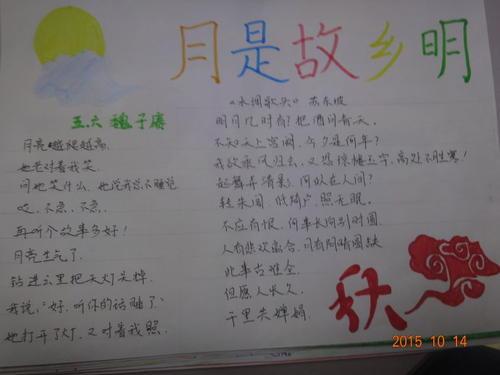 月是故乡明
五、六 魏子赓
月亮越爬越高,
她老对着我笑.
问她笑什么,她说我怎不睡觉
哎,不急,不急,
再听个故事多好!
月亮生气了.
钻进云里把天灯关掉.
我说:"好,听你的话睡了"
她打开了灯,又对着我照.
《水调歌头》苏东坡
明月几时有?把酒问青天.
不知天上宫阙,今夕是何年?
我欲乘风归去,又恐琼楼玉宇,高处不胜寒!
起舞弄清影,何似在人间?
转朱阁,低绮户,照无眠.
不应有恨,何事长向别时圆
人有悲欢离合,月有阴晴圆缺
此事古难全.
但愿人长久,
千里共婵娟.
秋
2015 10 14